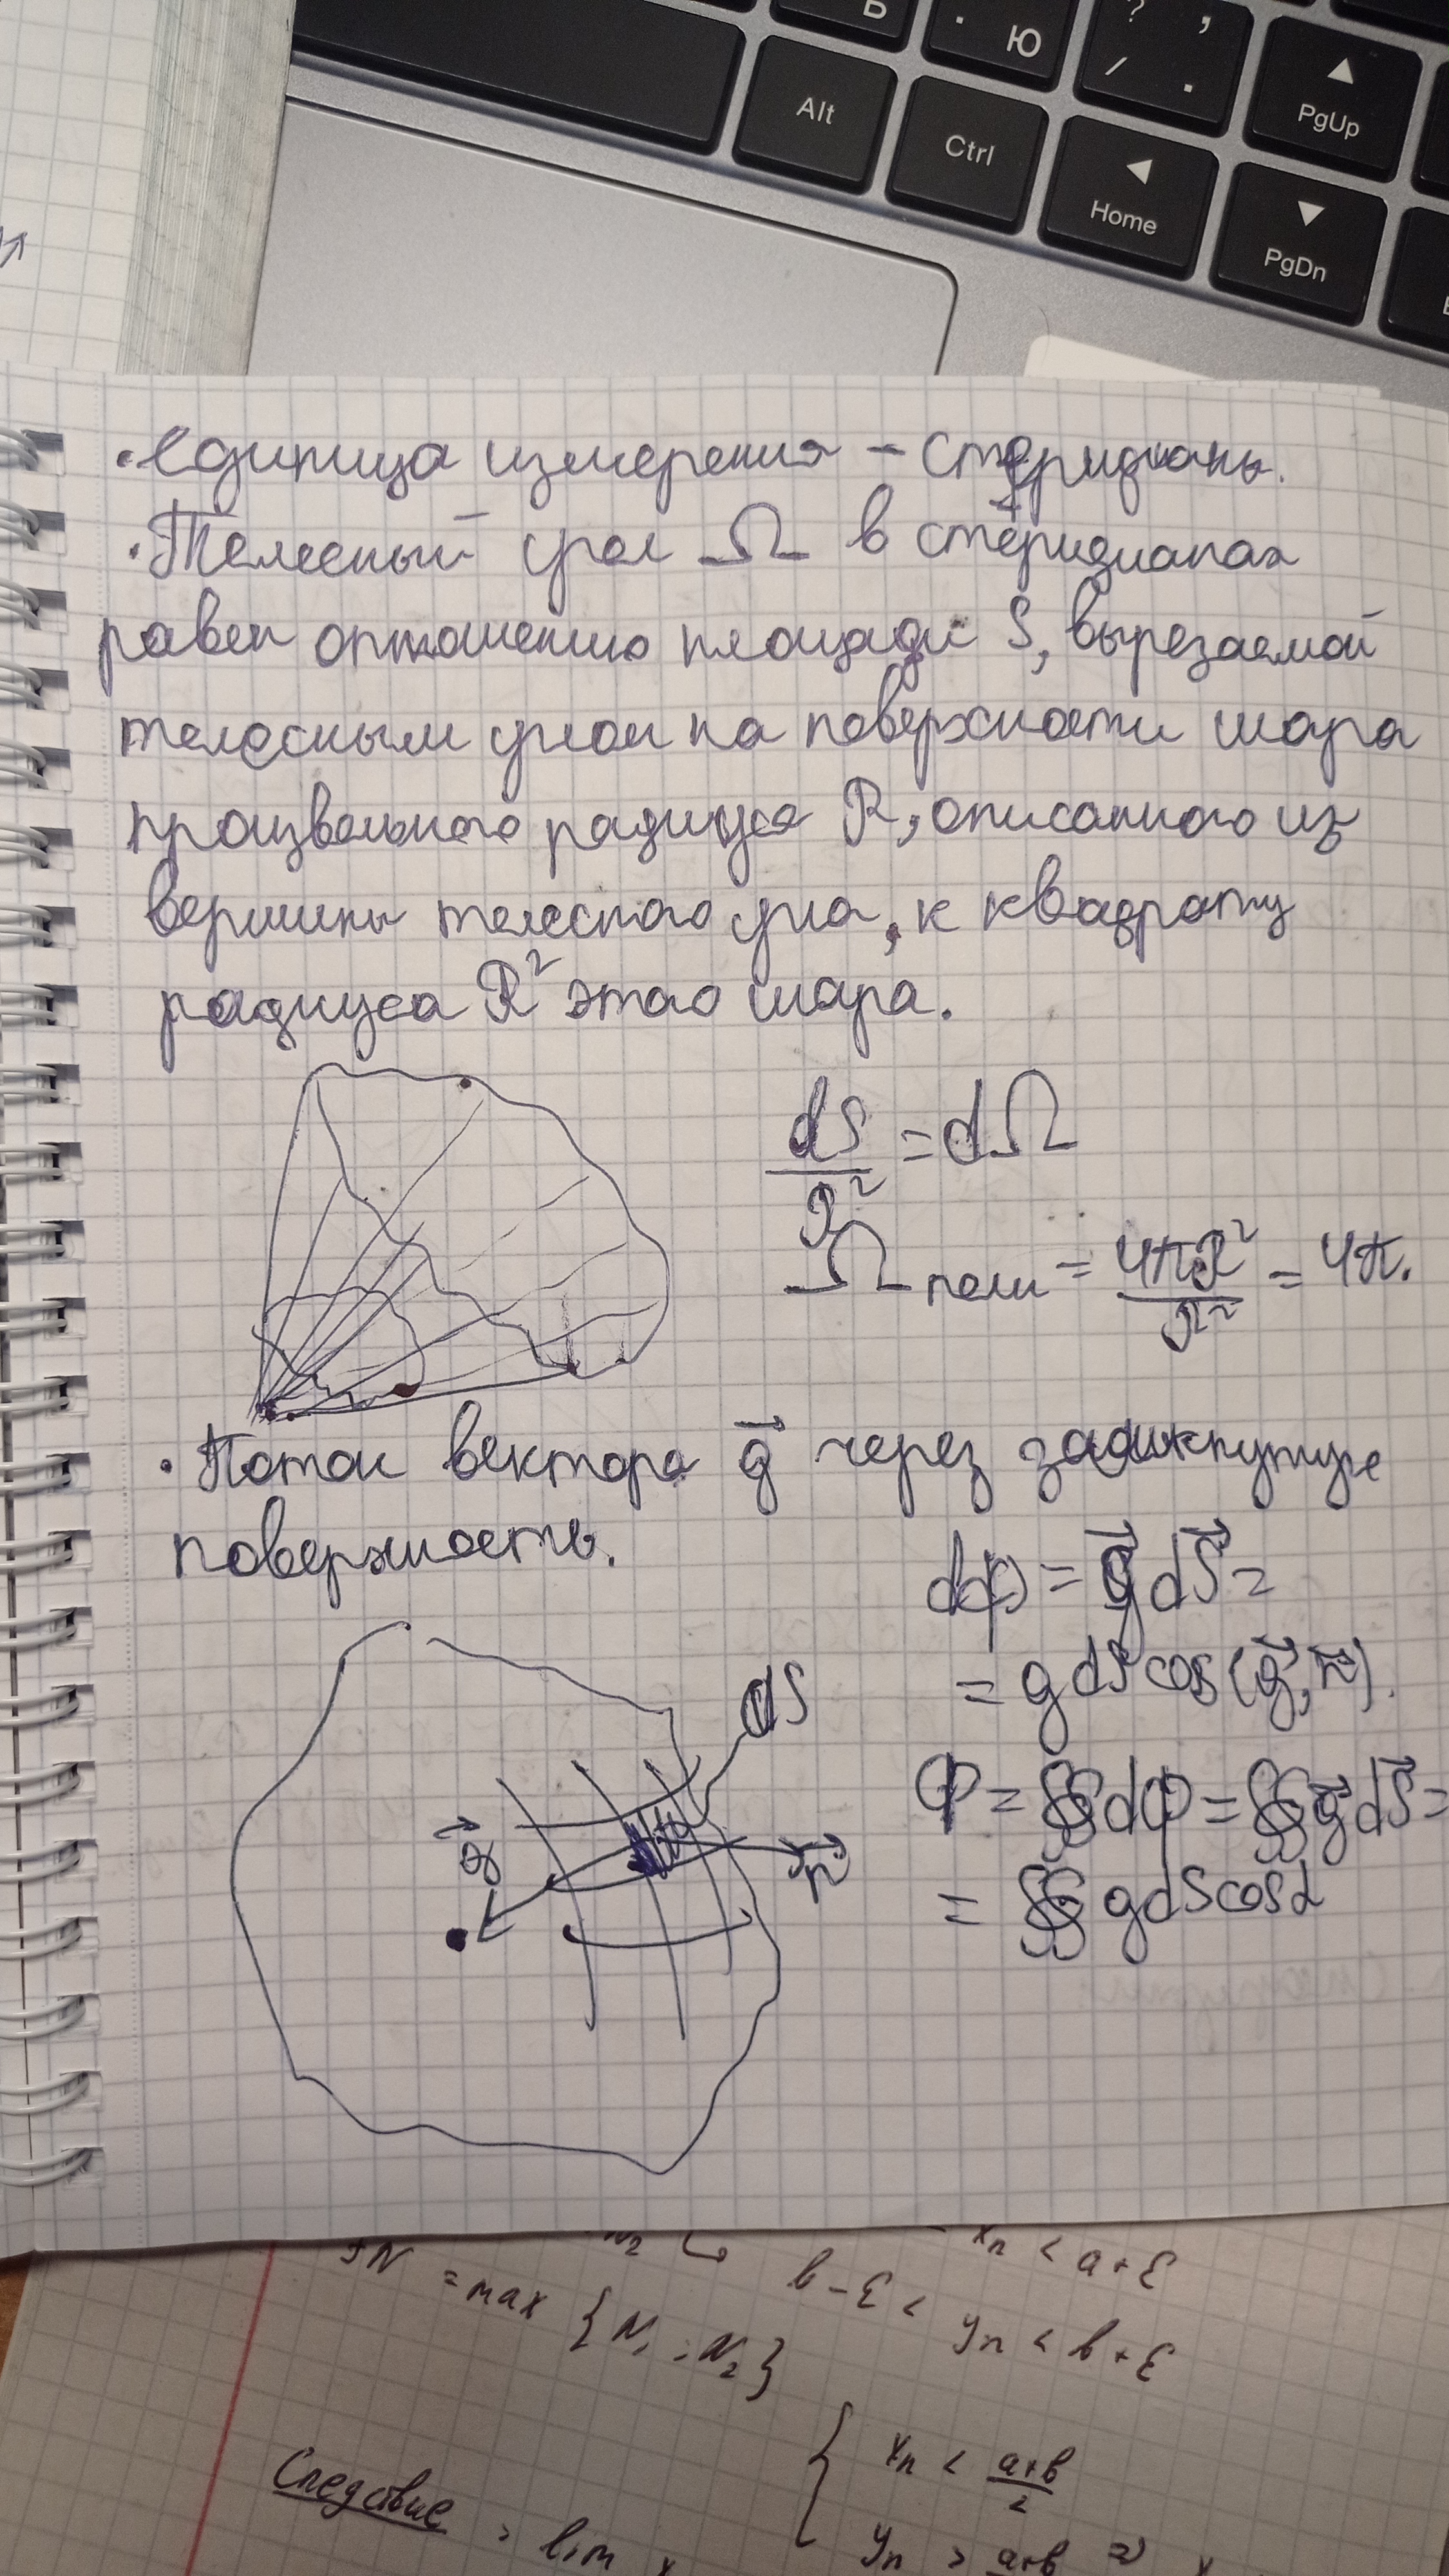 Ь
. Ю
? ,
/ .
Alt
Ctrl
Home
PgUp
PgDn
• единица измерения – стеридианы.
• Телесный угол Ω в стеридианах
равен отношению площади S, вырезаемой
телесным углом на поверхности шара
произвольного радиуса R, описанного из
вершины телесного угла, к квадрату
радиуса R² этого шара.
dS/R² = dΩ
Ω полн = 4πR²/R² = 4π.
• Поток вектора g⃗ через замкнутую
поверхность.
dφ = g⃗ dS⃗ =
= g dS cos(g⃗, n⃗).
dS
g⃗
n⃗
Φ = ∯ dφ = ∯ g⃗ dS⃗ =
= ∯ g dS cos α
N₂
xₙ < a+ε
∃N = max {N₁; N₂}
b-ε < yₙ < b+ε
Следствие
lim x
xₙ < a+b/2
yₙ > a+b ⇒